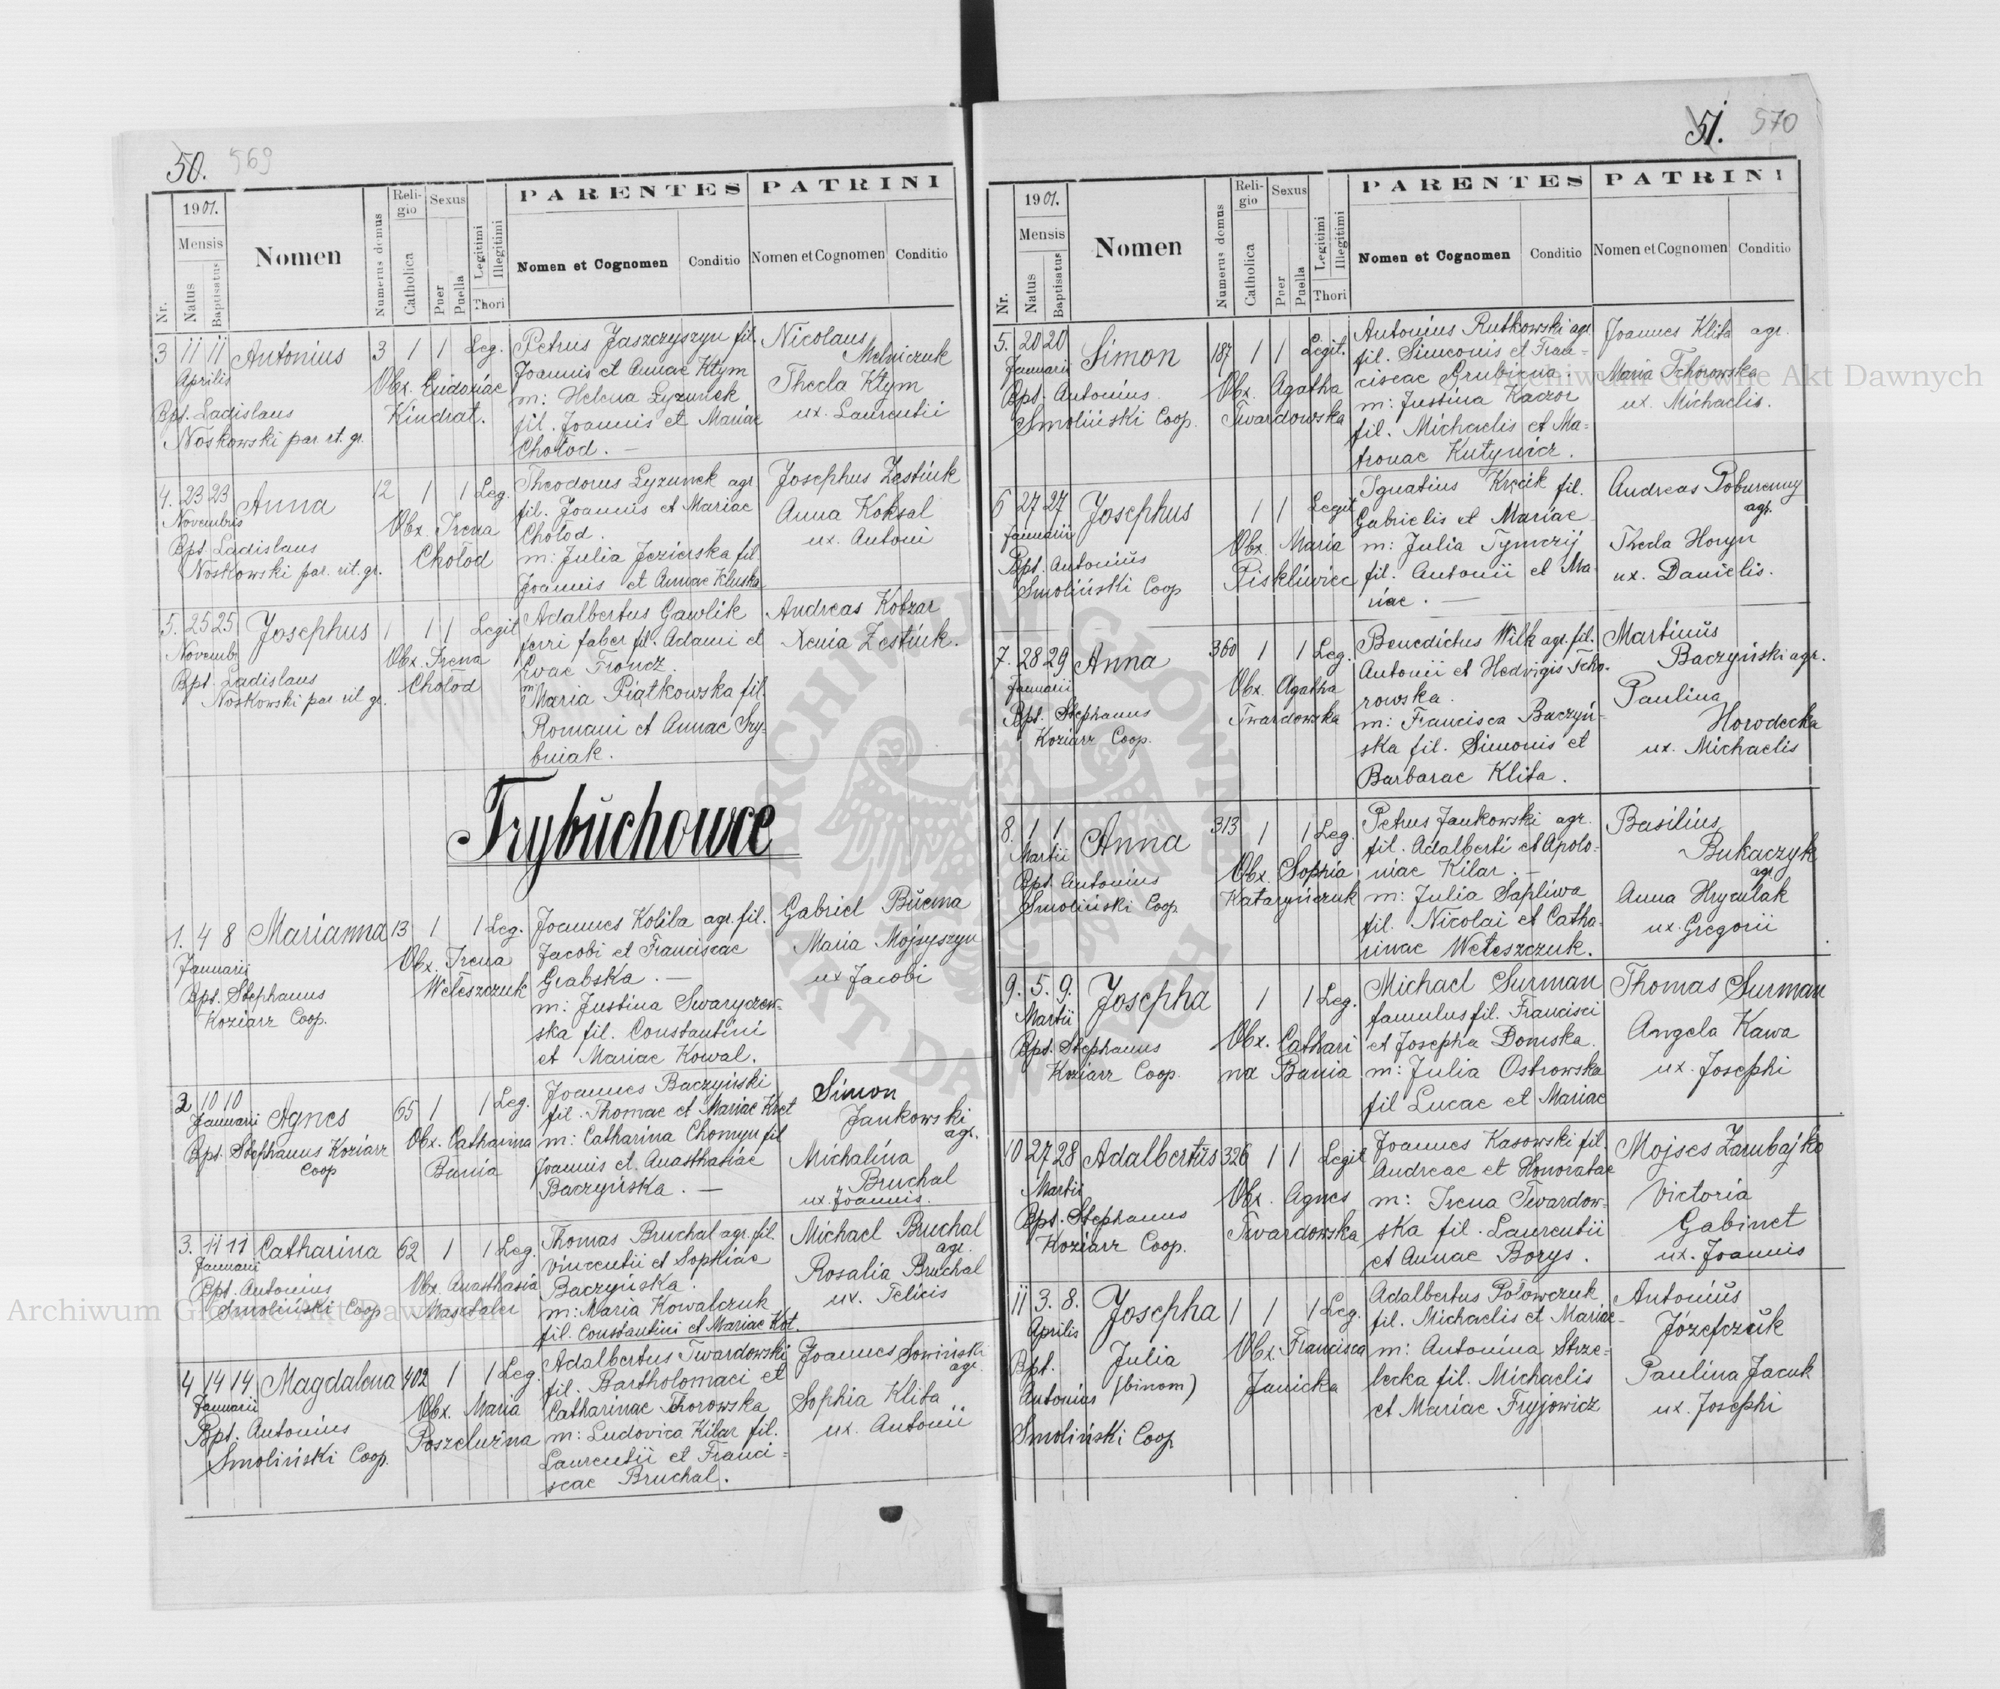 50. 569
1901.
Mensis
Nr.
Natus
Baptisatus
Nomen
Numerus domus
Religio
Catholica
Sexus
Puer
Puella
Legitimi
Illegitimi
Thori
PARENTES
Nomen et Cognomen
Conditio
PATRINI
Nomen et Cognomen
Conditio
3 11 11 Antonius 3 1 1 Leg. Petrus Jaszczyszyn fil. Nicolaus
Aprilis Joannis et Annae Ktym Melniczuk
Obx. Eudoxiae m: Helena Lyzunek Thecla Ktym
Bpt. Ladislaus Kindrat. fil. Joannis et Mariae ux. Laurentii
Noskowski par. rt. gr. Chołod. —
4. 23 23 Anna 12 1 1 Leg. Theodorus Lyzunek agr Josephus Zestiuk
Novembris fil. Joannis et Mariae Anna Koksal
Obx. Irena Chołod. ux. Antoni
Bpt. Ladislaus Chołod m: Julia Jezierska fil.
Noskowski par. rit. gr. Joannis et Annae Kluska
5. 25 25 Josephus 1 1 1 Legit Adalbertus Gawlik Andreas Kobzar
Novemb. ferri faber fil. Adami et Xenia Zestiuk.
Obx. Irena Evae Frondz.
Bpt. Ladislaus Chołod m Maria Piątkowska fil.
Noskowski par rit gr. Romani et Annae Sry-
bniak.
Trybuchowce
1. 4 8 Marianna 13 1 1 Leg. Joannes Kobiba agr. fil. Gabriel Bucma
Januarii Jacobi et Franciscae Maria Mojsyszyn
Obx. Irena Grabska. — ux Jacobi
Bpt. Stephanus Weteszczuk m: Justina Swaryczew-
Koziarz Coop. ska fil. Constantini
et Mariae Kowal.
2 10 10 Agnes 65 1 1 Leg. Joannes Baczyński Simon
Januarii fil. Thomae et Mariae Kret Jankowski
Obx. Catharina m: Catharina Chomyn fil agr.
Bpt. Stephanus Koziarz Bania Joannis et Anasthasiae Michalina
Coop Baczyńska. — Bruchal
ux. Joannis.
3. 11 11 Catharina 62 1 1 Leg. Thomas Bruchal agr. fil. Michael Bruchal
Januarii Vincentii et Sophiae agr.
Obx. Anasthasia Baczyńska. Rosalia Bruchal
Bpt. Antonius Masztaler m: Maria Kowalczuk ux. Felicis
Smoliński Coop fil. Constantini et Mariae Kot.
4 14 14 Magdalena 402 1 1 Leg. Adalbertus Twardowski Joannes Sowiński
Januarii fil. Bartholomaei et agr.
Obx. Maria Catharinae Thorowska Sophia Klita
Bpt. Antonius Poszeluźna m: Ludovica Kilar fil. ux. Antonii
Smoliński Coop. Laurentii et Franci-
scae Bruchal.
51. 570
1901.
Mensis
Nr.
Natus
Baptisatus
Nomen
Numerus domus
Religio
Catholica
Sexus
Puer
Puella
Legitimi
Illegitimi
Thori
PARENTES
Nomen et Cognomen
Conditio
PATRINI
Nomen et Cognomen
Conditio
5. 20 20 Simon 187 1 1 Legit. Antonius Rutkowski agr Joannes Klita agr.
Januarii fil. Simeonis et Fran- Maria Tchorowska
Bpt. Antonius Obx. Agatha ciscae Grubiena ux. Michaelis.
Smoliński Coop. Twardowska m: Justina Kaczor
fil. Michaelis et Ma-
tronae Kutynicz.
6 27 27 Josephus 1 1 Legit Ignatius Kręcik fil. Andreas Poburenny
Januarii Gabrielis et Mariae agr.
Obx. Maria m: Julia Tymczij Thecla Horyn
Bpt. Antonius Pisklewiec fil. Antonii et Ma- ux. Danielis.
Smoliński Coop riae. —
7. 28 29 Anna 360 1 1 Leg. Benedictus Wilk agr. fil. Martinus
Januarii Antonii et Hedvigis Tcho- Baczyński agr.
Obx. Agatha rowska. Paulina
Bpt. Stephanus Twardowska m: Francisca Baczyń- Horodecka
Koziarz Coop. ska fil. Simonis et ux. Michaelis
Barbarae Klita.
8. 1 1 Anna 313 1 1 Leg. Petrus Jankowski agr. Basilius
Martii fil. Adalberti et Apolo- Bukaczyk
Obx. Sophia niae Kilar. — agr.
Bpt. Antonius Katarynczuk m: Julia Sapliwa Anna Hryculak
Smoliński Coop. fil. Nicolai et Catha- ux. Gregorii
rinae Weteszczuk.
9. 5. 9. Josepha 1 1 Leg. Michael Surman Thomas Surman
Martii famulus fil. Francisci Angela Kawa
Bpt. Stephanus Obx. Cathari et Josepha Domska. ux. Josephi
Koziarz Coop. na Bania m: Julia Ostrowska
fil Lucae et Mariae
10 27 28 Adalbertus 326 1 1 Legit Joannes Kasowski fil. Mojses Zarubajko
Martii Andreae et Honoratae Victoria
Obx. Agnes m: Irena Twardow- Gabinet
Bpt. Stephanus Twardowska ska fil. Laurentii ux. Joannis
Koziarz Coop. et Annae Borys.
11 3. 8. Josepha 1 1 1 Leg. Adalbertus Połowczuk Antonius
Aprilis fil. Michaelis et Mariae Józefczuk
Bpt. Julia Obx. Francisca m: Antonina Strze- Paulina Jacuk
Antonius (binom) Janicka lecka fil. Michaelis ux. Josephi
Smoliński Coop et Mariae Fryjowicz
Archiwum Główne Akt Dawnych
Archiwum Główne Akt Dawnych
ARCHIWUM GŁÓWNE AKT DAWNYCH